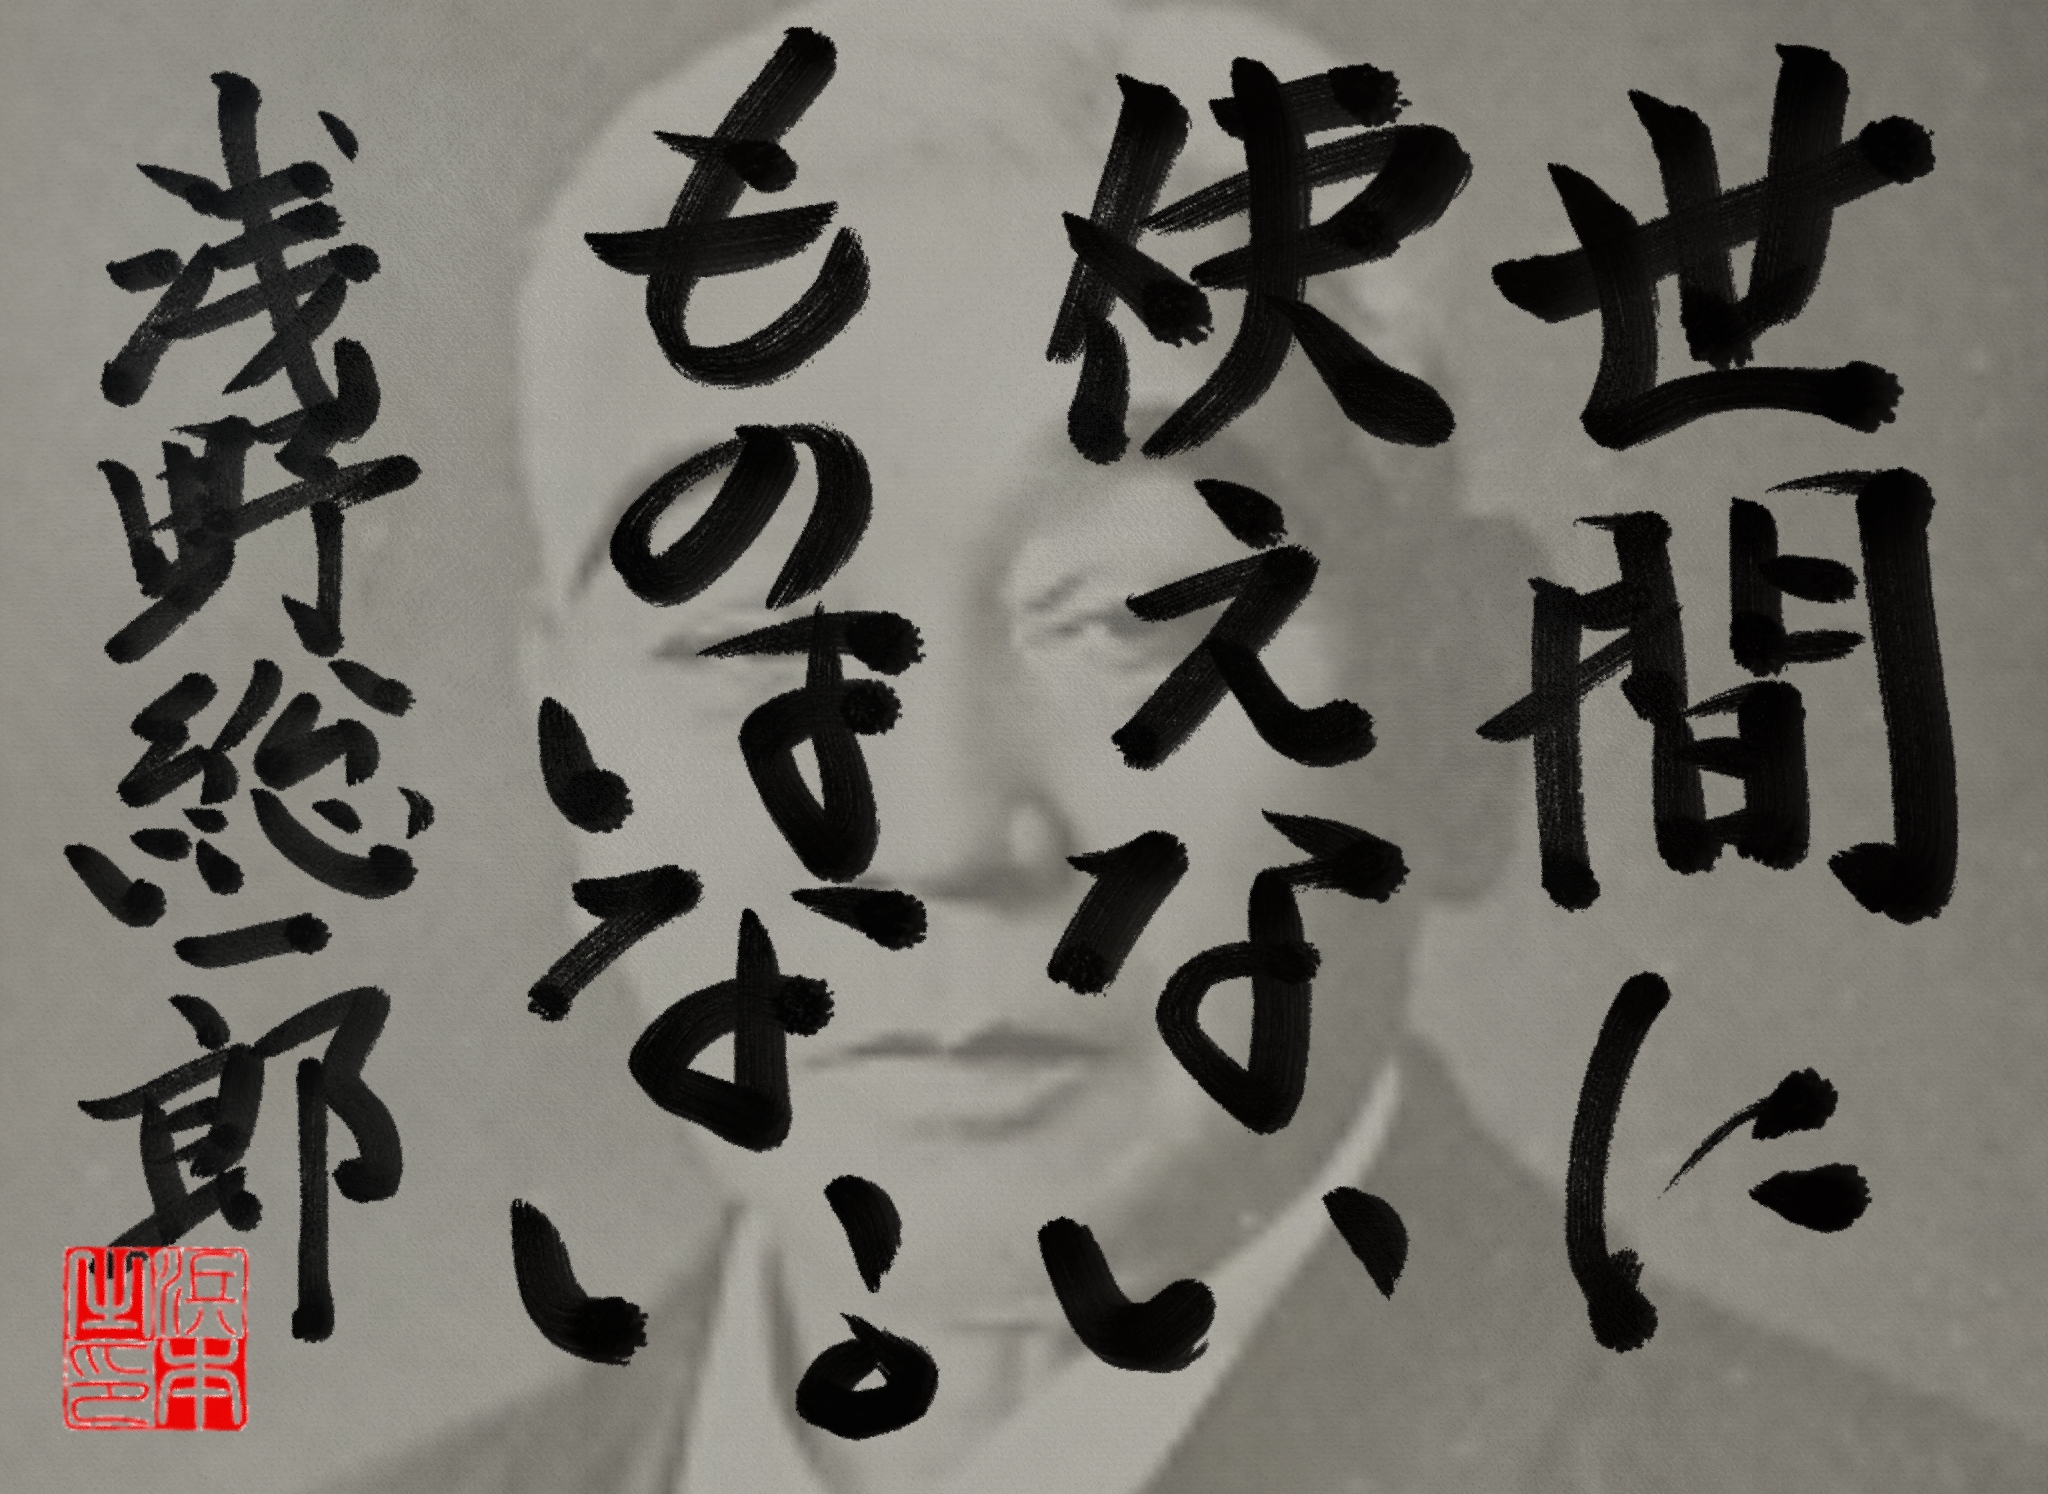 世間に
使えない
ものはない。
浅野総一郎
浜本
之印